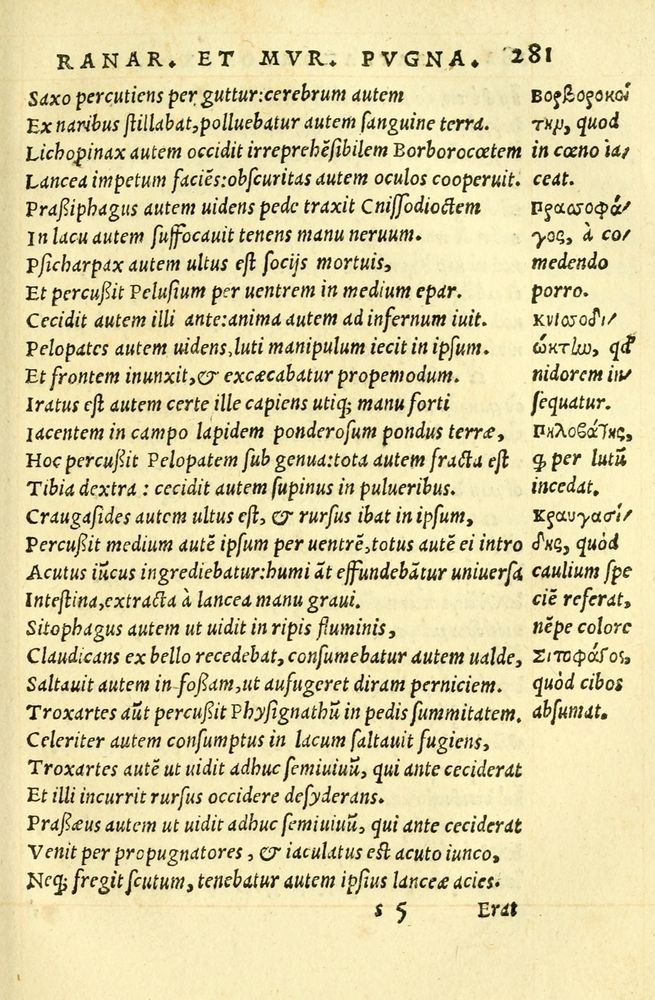 RANAR. ET MVR. PVGNA. 281
Saxo percutiens per guttur:cerebrum autem
Ex naribus ſtillabat,polluebatur autem ſanguine terra.
Lichopinax autem occidit irreprehēſibilem Borborocœtem
Lancea impetum faciēs:obſcuritas autem oculos cooperuit.
Praßiphagus autem uidens pede traxit Cniſſodioctem
In lacu autem ſuffocauit tenens manu neruum.
Pſicharpax autem ultus eſt ſocijs mortuis,
Et percußit Peluſium per uentrem in medium epar.
Cecidit autem illi ante:anima autem ad infernum iuit.
Pelopates autem uidens,luti manipulum iecit in ipſum.
Et frontem inunxit,& excæcabatur propemodum.
Iratus eſt autem certe ille capiens utiq; manu forti
Iacentem in campo lapidem ponderoſum pondus terræ,
Hoc percußit Pelopatem ſub genua:tota autem fracta eſt
Tibia dextra : cecidit autem ſupinus in pulueribus.
Craugaſides autem ultus eſt, & rurſus ibat in ipſum,
Percußit medium autē ipſum per uentrē,totus autē ei intro
Acutus iūcus ingrediebatur:humi āt effundebātur uniuerſa
Inteſtina,extracta à lancea manu graui.
Sitophagus autem ut uidit in ripis fluminis,
Claudicans ex bello recedebat, conſumebatur autem ualde,
Saltauit autem in foßam,ut aufugeret diram perniciem.
Troxartes aūt percußit Phyſignathū in pedis ſummitatem.
Celeriter autem conſumptus in lacum ſaltauit fugiens,
Troxartes autē ut uidit adhuc ſemiuiuū, qui ante ceciderat
Et illi incurrit rurſus occidere deſyderans.
Praßæus autem ut uidit adhuc ſemiuiuū, qui ante ceciderat
Venit per propugnatores , & iaculatus eſt acuto iunco,
Neq; fregit ſcutum, tenebatur autem ipſius lanceæ acies.
s 5 Erat
Βορβοροκοί
την, quod
in cœno ia/
ceat.
Πρασσοφά/
γος, à co/
medendo
porro.
κνισσοδι/
ώκτην, qđ
nidorem in/
ſequatur.
Πηλοβάτης,
q, per lutū
incedat.
Κραυγασί/
δης, quòd
caulium ſpe
ciē referat,
nēpe colore
Σιτοφάγος,
quòd cibos
abſumat.